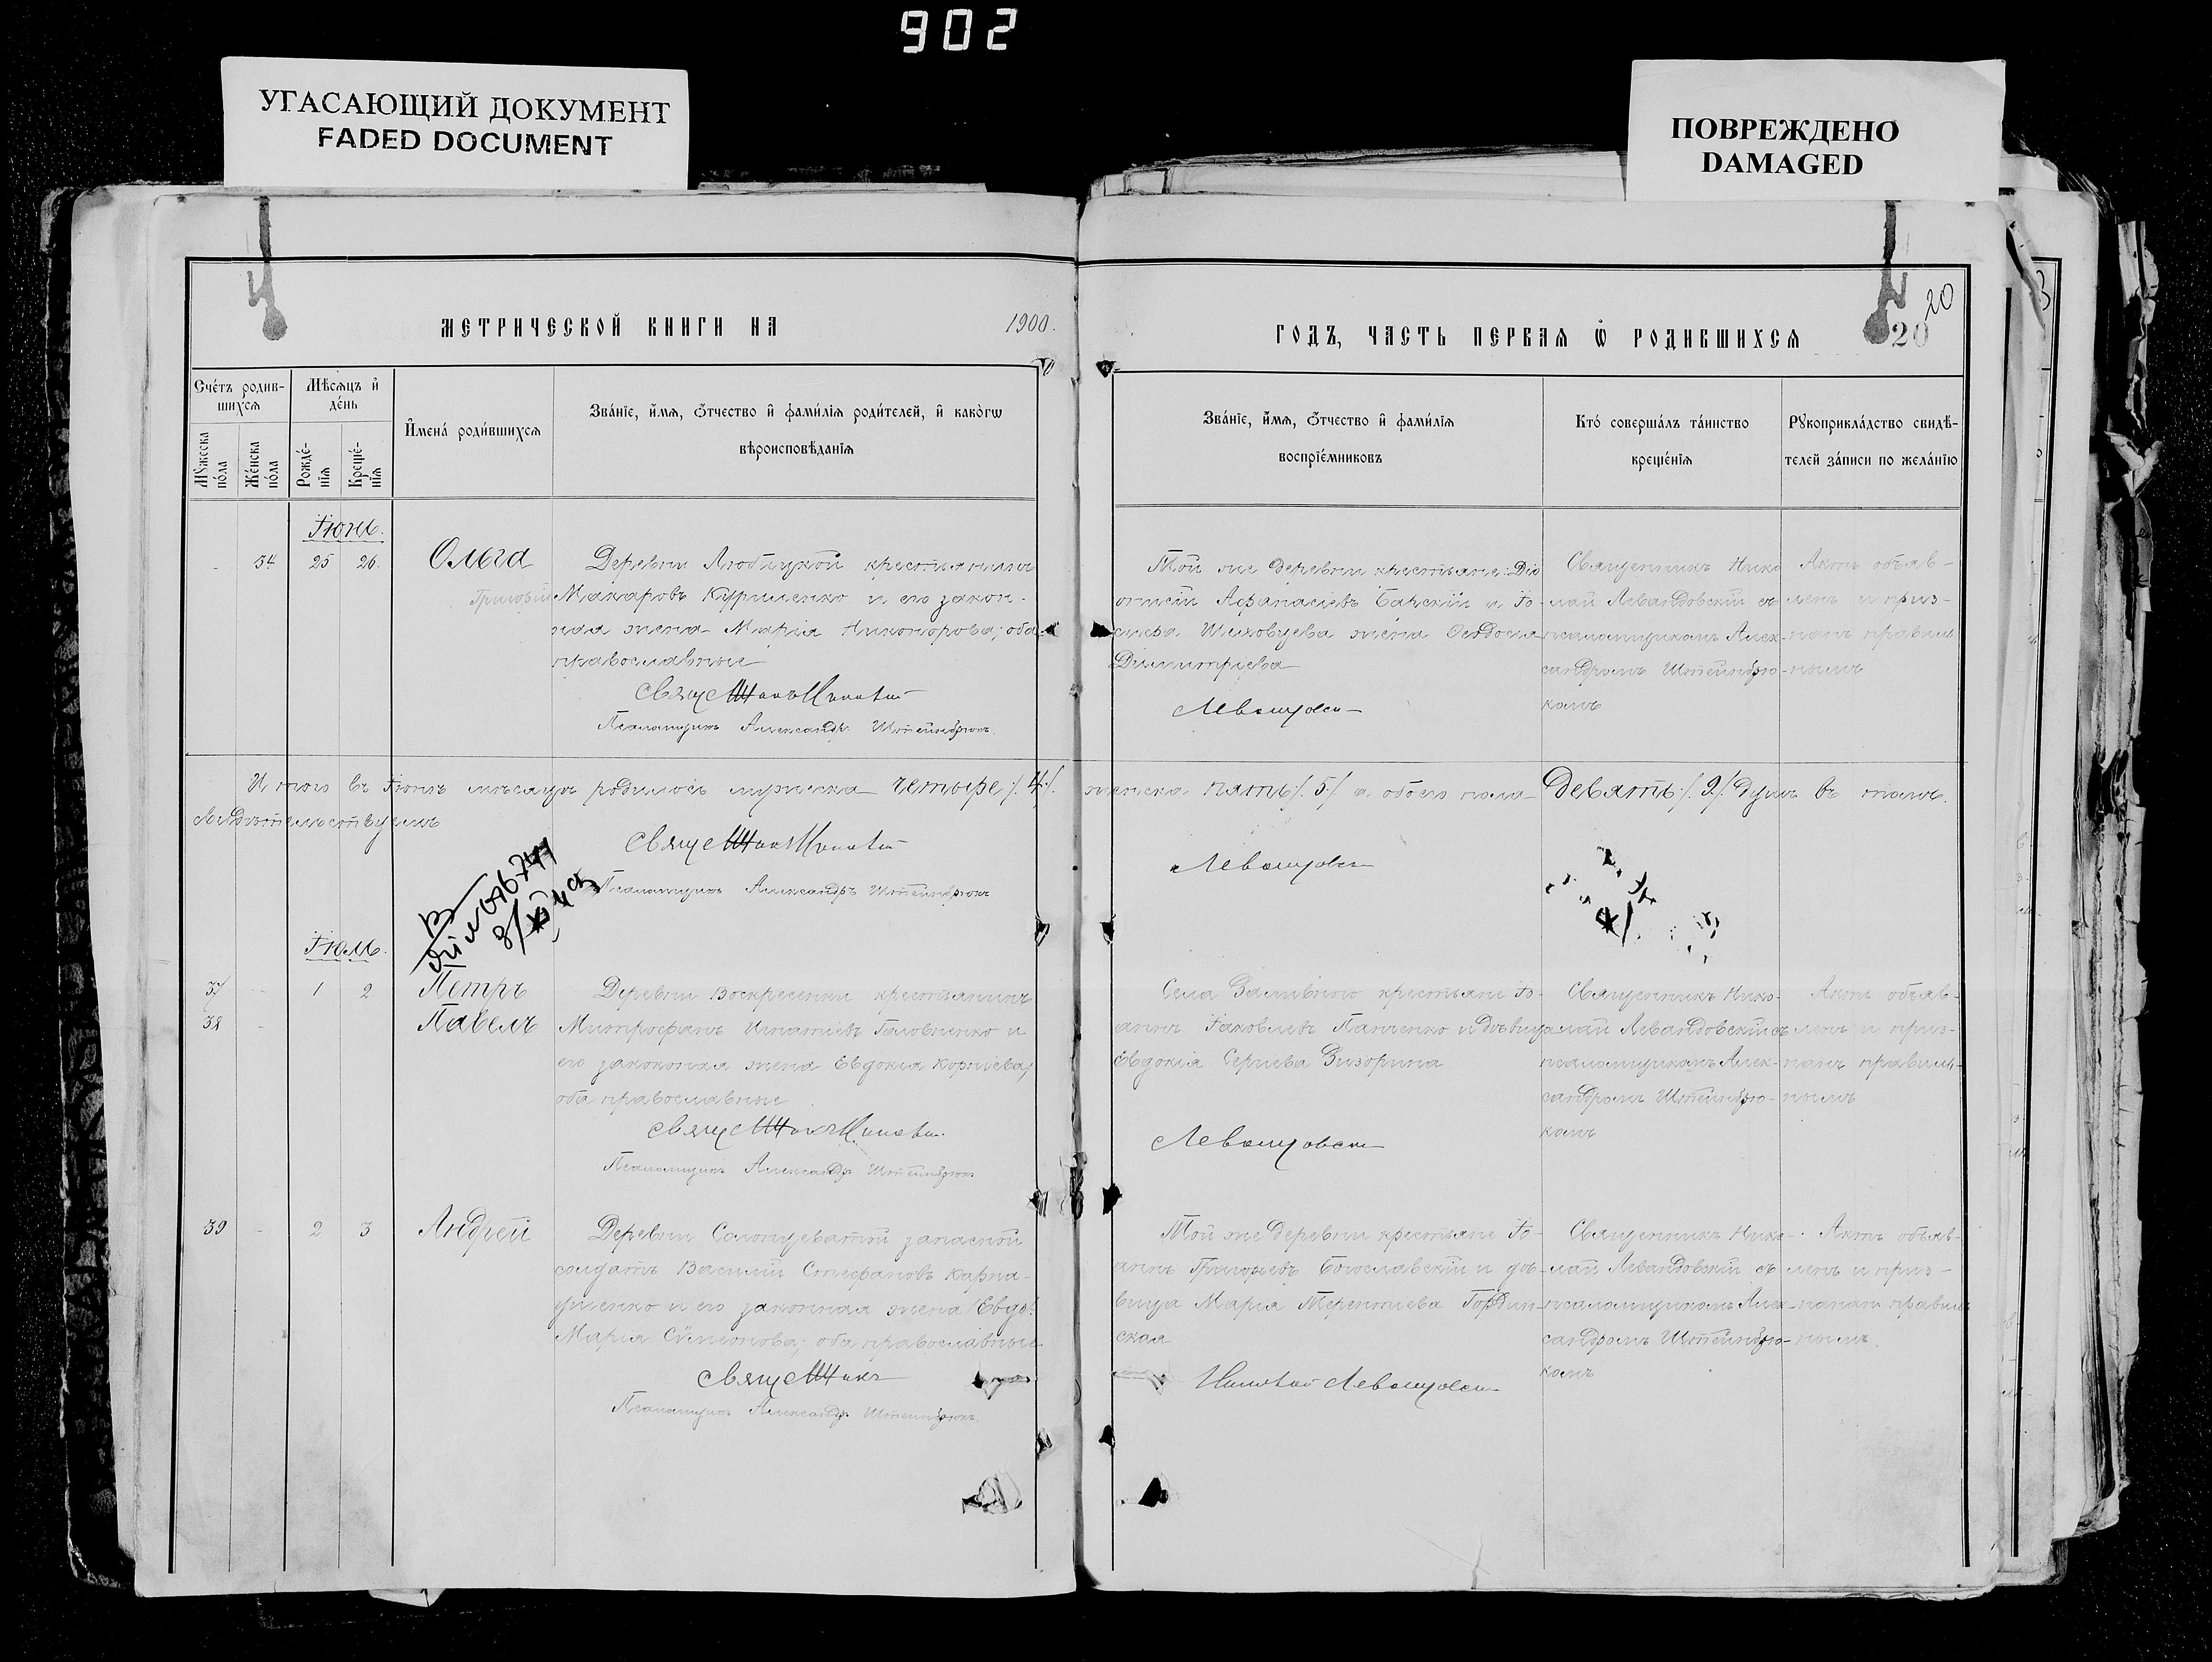 902
УГАСАЮЩИЙ ДОКУМЕНТ
FADED DOCUMENT
ПОВРЕЖДЕНО
DAMAGED
МЕТРИЧЕСКОЙ КНИГИ НА 1900.
ГОДЪ, ЧАСТЬ ПЕРВАЯ Ѡ РОДИВШИХСЯ
20
20
Сче́тъ родив-
шихсѧ
Мꙋжеска по́ла
Же́нска по́ла
Мѣ́сѧцъ и҆ де́нь
Рожде́-
нїѧ
Креще́-
нїѧ
И҆мена́ роди́вшихсѧ
Зва́нїе, и҆́мѧ, ѻ҆́тчество и҆ фами́лїѧ роди́телей, и҆ како́гѡ
вѣроисповѣ́данїѧ
Зва́нїе, и҆́мѧ, ѻ҆́тчество и҆ фами́лїѧ
воспрїе́мниковъ
Кто́ соверша́лъ та́инство
креще́нїѧ
Рꙋкоприкла́дство свидѣ́-
телей за́писи по жела́нїю
Іюнь.
34 25 26.
Ольга
Деревни Любицкой крестьянинъ
Григорій Макаровъ Куриленко и его закон-
ная жена Марія Никонорова; оба
православные
Священникъ Николай
Псаломщикъ Александръ Штейнбрюкъ.
Той же деревни крестьяне: Діо
онисій Афанасіевъ и Іо-
сифа жена Ѳеодосія
Димитріева
Левандовскій
Священникъ Нико
лай Левандовскій съ
псаломщикомъ Алек-
сандромъ Штейнбрю-
комъ
Актъ объяв-
ленъ и приз-
нанъ правиль
нымъ
Итого въ Іюнѣ мѣсяцѣ родилось мужеска четыре /. 4 /. женска пять /. 5 /. а обоего пола девять /. 9 /. душъ въ томъ
свидѣтельствуемъ
Священникъ Николай
Левандовскій
Псаломщикъ Александръ Штейнбрюкъ
Іюль.
37 1 2
38
Петръ
Павелъ
Деревни Воскресенки крестьянинъ
Митрофанъ Игнатіевъ Головченко и
его законная жена Евдокія Корніева,
оба православные
Священникъ Николай
Псаломщикъ Александръ Штейнбрюкъ
Села Заливного крестьяне Іо-
аннъ Іаковлевъ Панченко и дѣвица
Евдокія Сергіева Визорина
Левандовскій
Священникъ Нико-
лай Левандовскій съ
псаломщикомъ Алек-
сандромъ Штейнбрю-
комъ
Актъ объяв-
ленъ и приз-
нанъ правиль-
нымъ
39 2 3
Андрей
Деревни Солонцеватой запасной
солдатъ Василій Стефановъ Карпа-
ченко и его законная жена /Евдо/
Марія Сѵмеонова; оба православные
Священникъ
Псаломщикъ Александръ Штейнбрюкъ.
Той же деревни крестьяне Іо-
аннъ Григорьевъ Богославскій и дѣ-
вица Марія Терентіева Гордин-
ская
Николай Левандовскій
Священникъ Нико-
лай Левандовскій съ
псаломщикомъ Алек-
сандромъ Штейнбрю-
комъ
Актъ объяв-
ленъ и приз-
нанъ правиль
нымъ.